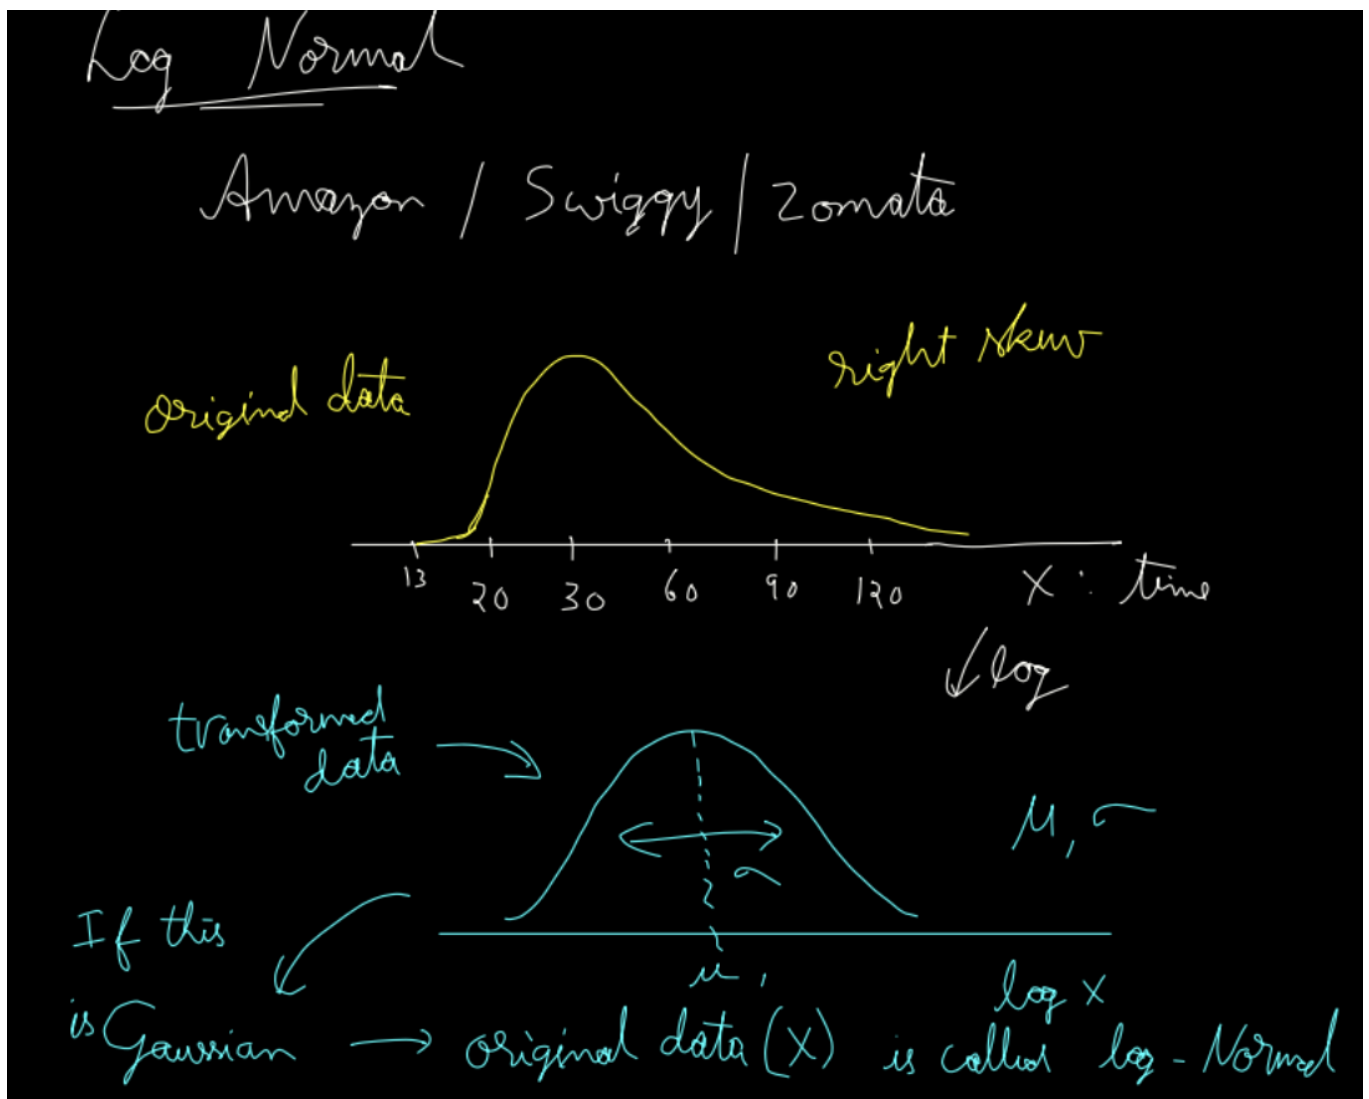 Log Normal
Amazon / Swiggy / Zomata
original data
right skew
13 20 30 60 90 120 X : time
↓ log
transformed
data
μ, σ
σ
If this
μ,
log x
is Gaussian → original data (X) is called log - Normal